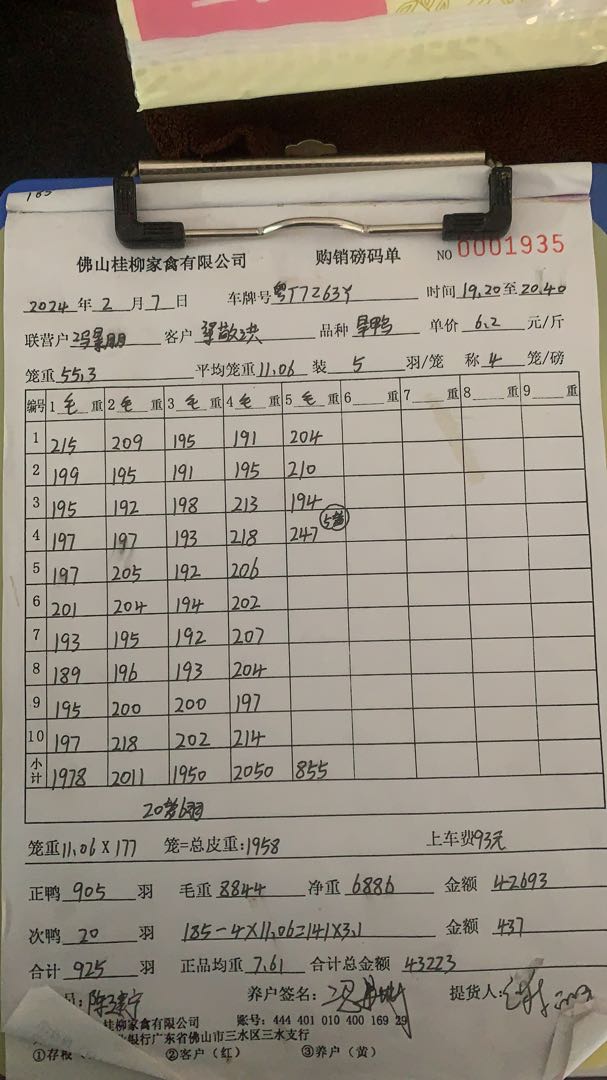 185
佛山桂柳家禽有限公司 购销磅码单 NO 0001935
2024 年 2 月 7 日 车牌号 粤T7263Y 时间 19.20 至 20.40
联营户 冯景朋 客户 品种 旱鸭 单价 6.2 元/斤
笼重 55.3 平均笼重 11.06 装 5 羽/笼 称 4 笼/磅
编号 1 毛 重 2 毛 重 3 毛 重 4 毛 重 5 毛 重 6 重 7 重 8 重 9 重
1 215 209 195 191 204
2 199 195 191 195 210
3 195 192 198 213 194
4 197 197 193 218 247 5笼
5 197 205 192 206
6 201 204 194 202
7 193 195 192 207
8 189 196 193 204
9 195 200 200 197
10 197 218 202 214
小计 1978 2011 1950 2050 855
20笼6羽
笼重 11.06 X 177 笼=总皮重: 1958 上车费 93元
正鸭 905 羽 毛重 8844 净重 6886 金额 42693
次鸭 20 羽 185-4X11.06=141X3.1 金额 437
合计 925 羽 正品均重 7.61 合计总金额 43223
养户签名: 提货人:
桂柳家禽有限公司 账号: 444 401 010 400 169 29
银行广东省佛山市三水区三水支行
①存根 ②客户(红) ③养户(黄)